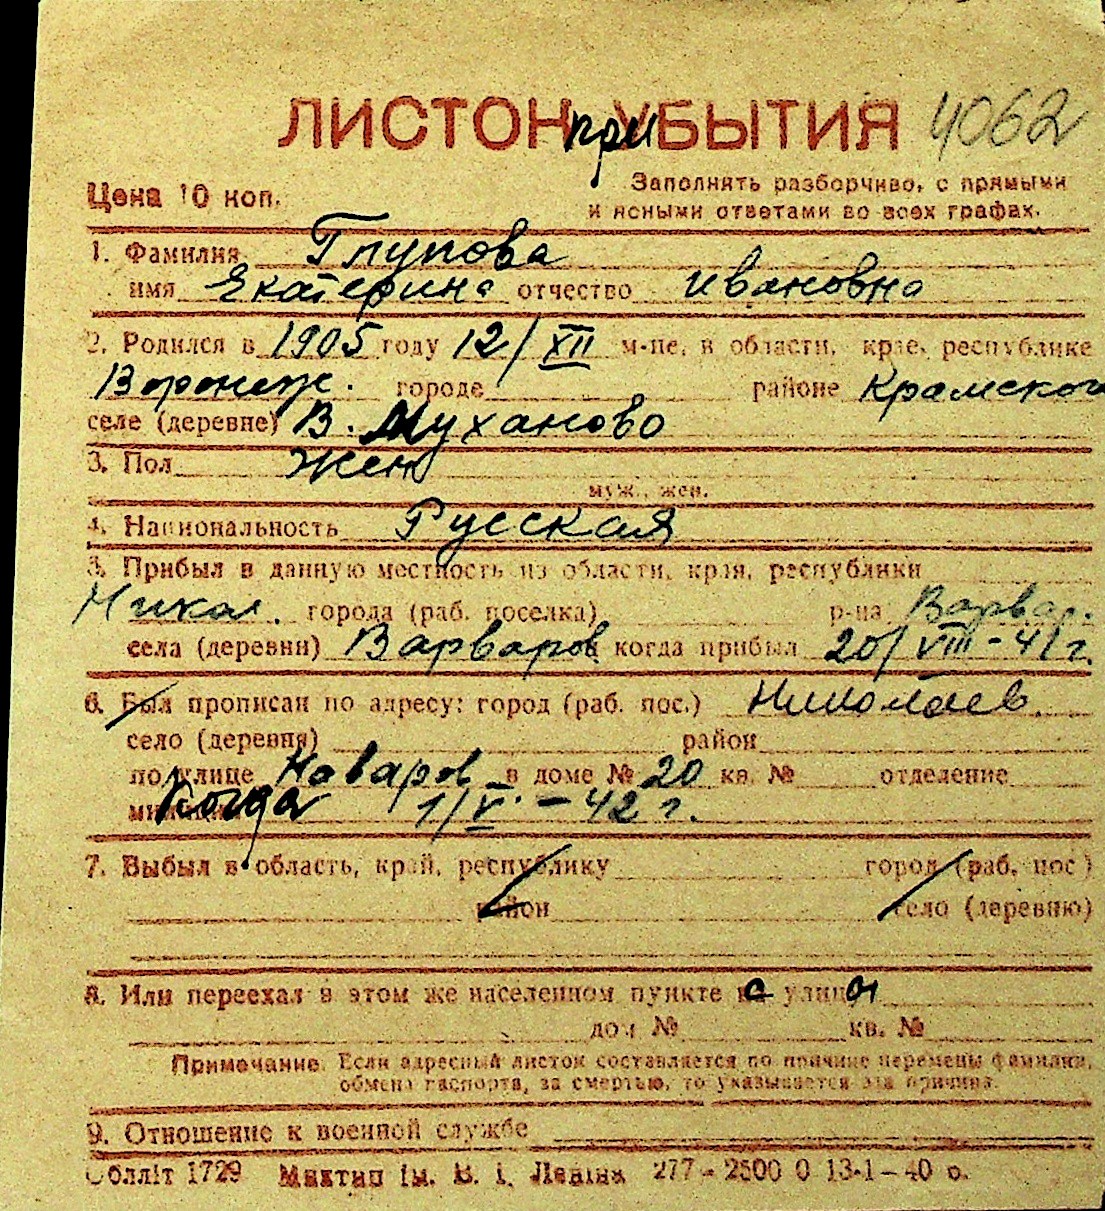 ЛИСТОК при УБЫТИЯ 4062
Цена 10 коп.
Заполнять разборчиво, с прямыми
и ясными ответами во всех графах.
1. Фамилия Глупова
имя Екатерина отчество Ивановна
2. Родился в 1905 году 12/XII м-це, в области, крае, республике
Воронеж. городе районе Крамского
селе (деревне) В. Муханово
3. Пол Жен
муж., жен.
4. Национальность Русская
5. Прибыл в данную местность из области, края, республики
Никол. города (раб. поселка) р-на Варвар.
села (деревни) Варваров когда прибыл 20/VIII-41 г.
6. Был прописан по адресу: город (раб. пос.) Николаев
село (деревня) район
по улице Наваров в доме № 20 кв. № отделение
милиции Когда 1/V. - 42 г.
7. Выбыл в область, край, республику город (раб. пос)
район село (деревню)
8. Или переехал в этом же населенном пункте на с улицы
дом № кв. №
Примечание. Если адресный листок составляется по причине перемены фамилии,
обмена паспорта, за смертью, то указывается эта причина.
9. Отношение к военной службе
Обллiт 1729 Миктип iм. В. I. Ленiна 277 - 2500 0 13-1-40 о.